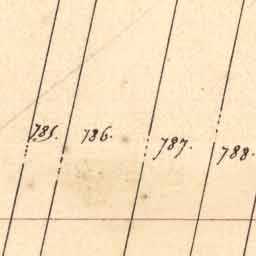 785.
786.
787.
788.